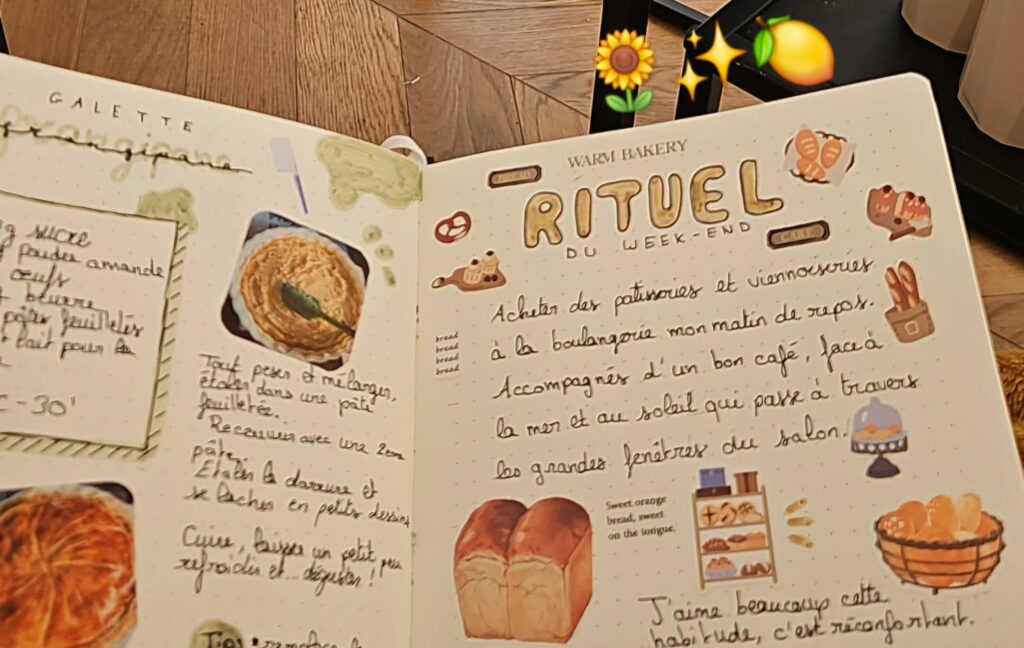 GALETTE
frangipane
g sucre
poudre amande
œufs
beurre
pâtes feuilletés
lait pour la
C - 30'
Tout peser et mélanger,
étaler dans une pâte
feuilletée.
Recouvrir avec une 2ème
pâte.
Etaler la dorure et
se lâcher en petits dessins
Cuire, laisser un petit peu
refroidir et... déguster !
Tips
WARM BAKERY
RITUEL
DU WEEK-END
CAKE
Acheter des patisseries et viennoiseries
à la boulangerie mon matin de repos.
Accompagnés d'un bon café, face à
la mer et au soleil qui passe à travers
les grandes fenêtres du salon.
bread
bread
bread
bread
Sweet orange
bread, sweet
on the tongue.
J'aime beaucoup cette
habitude, c'est réconfortant.